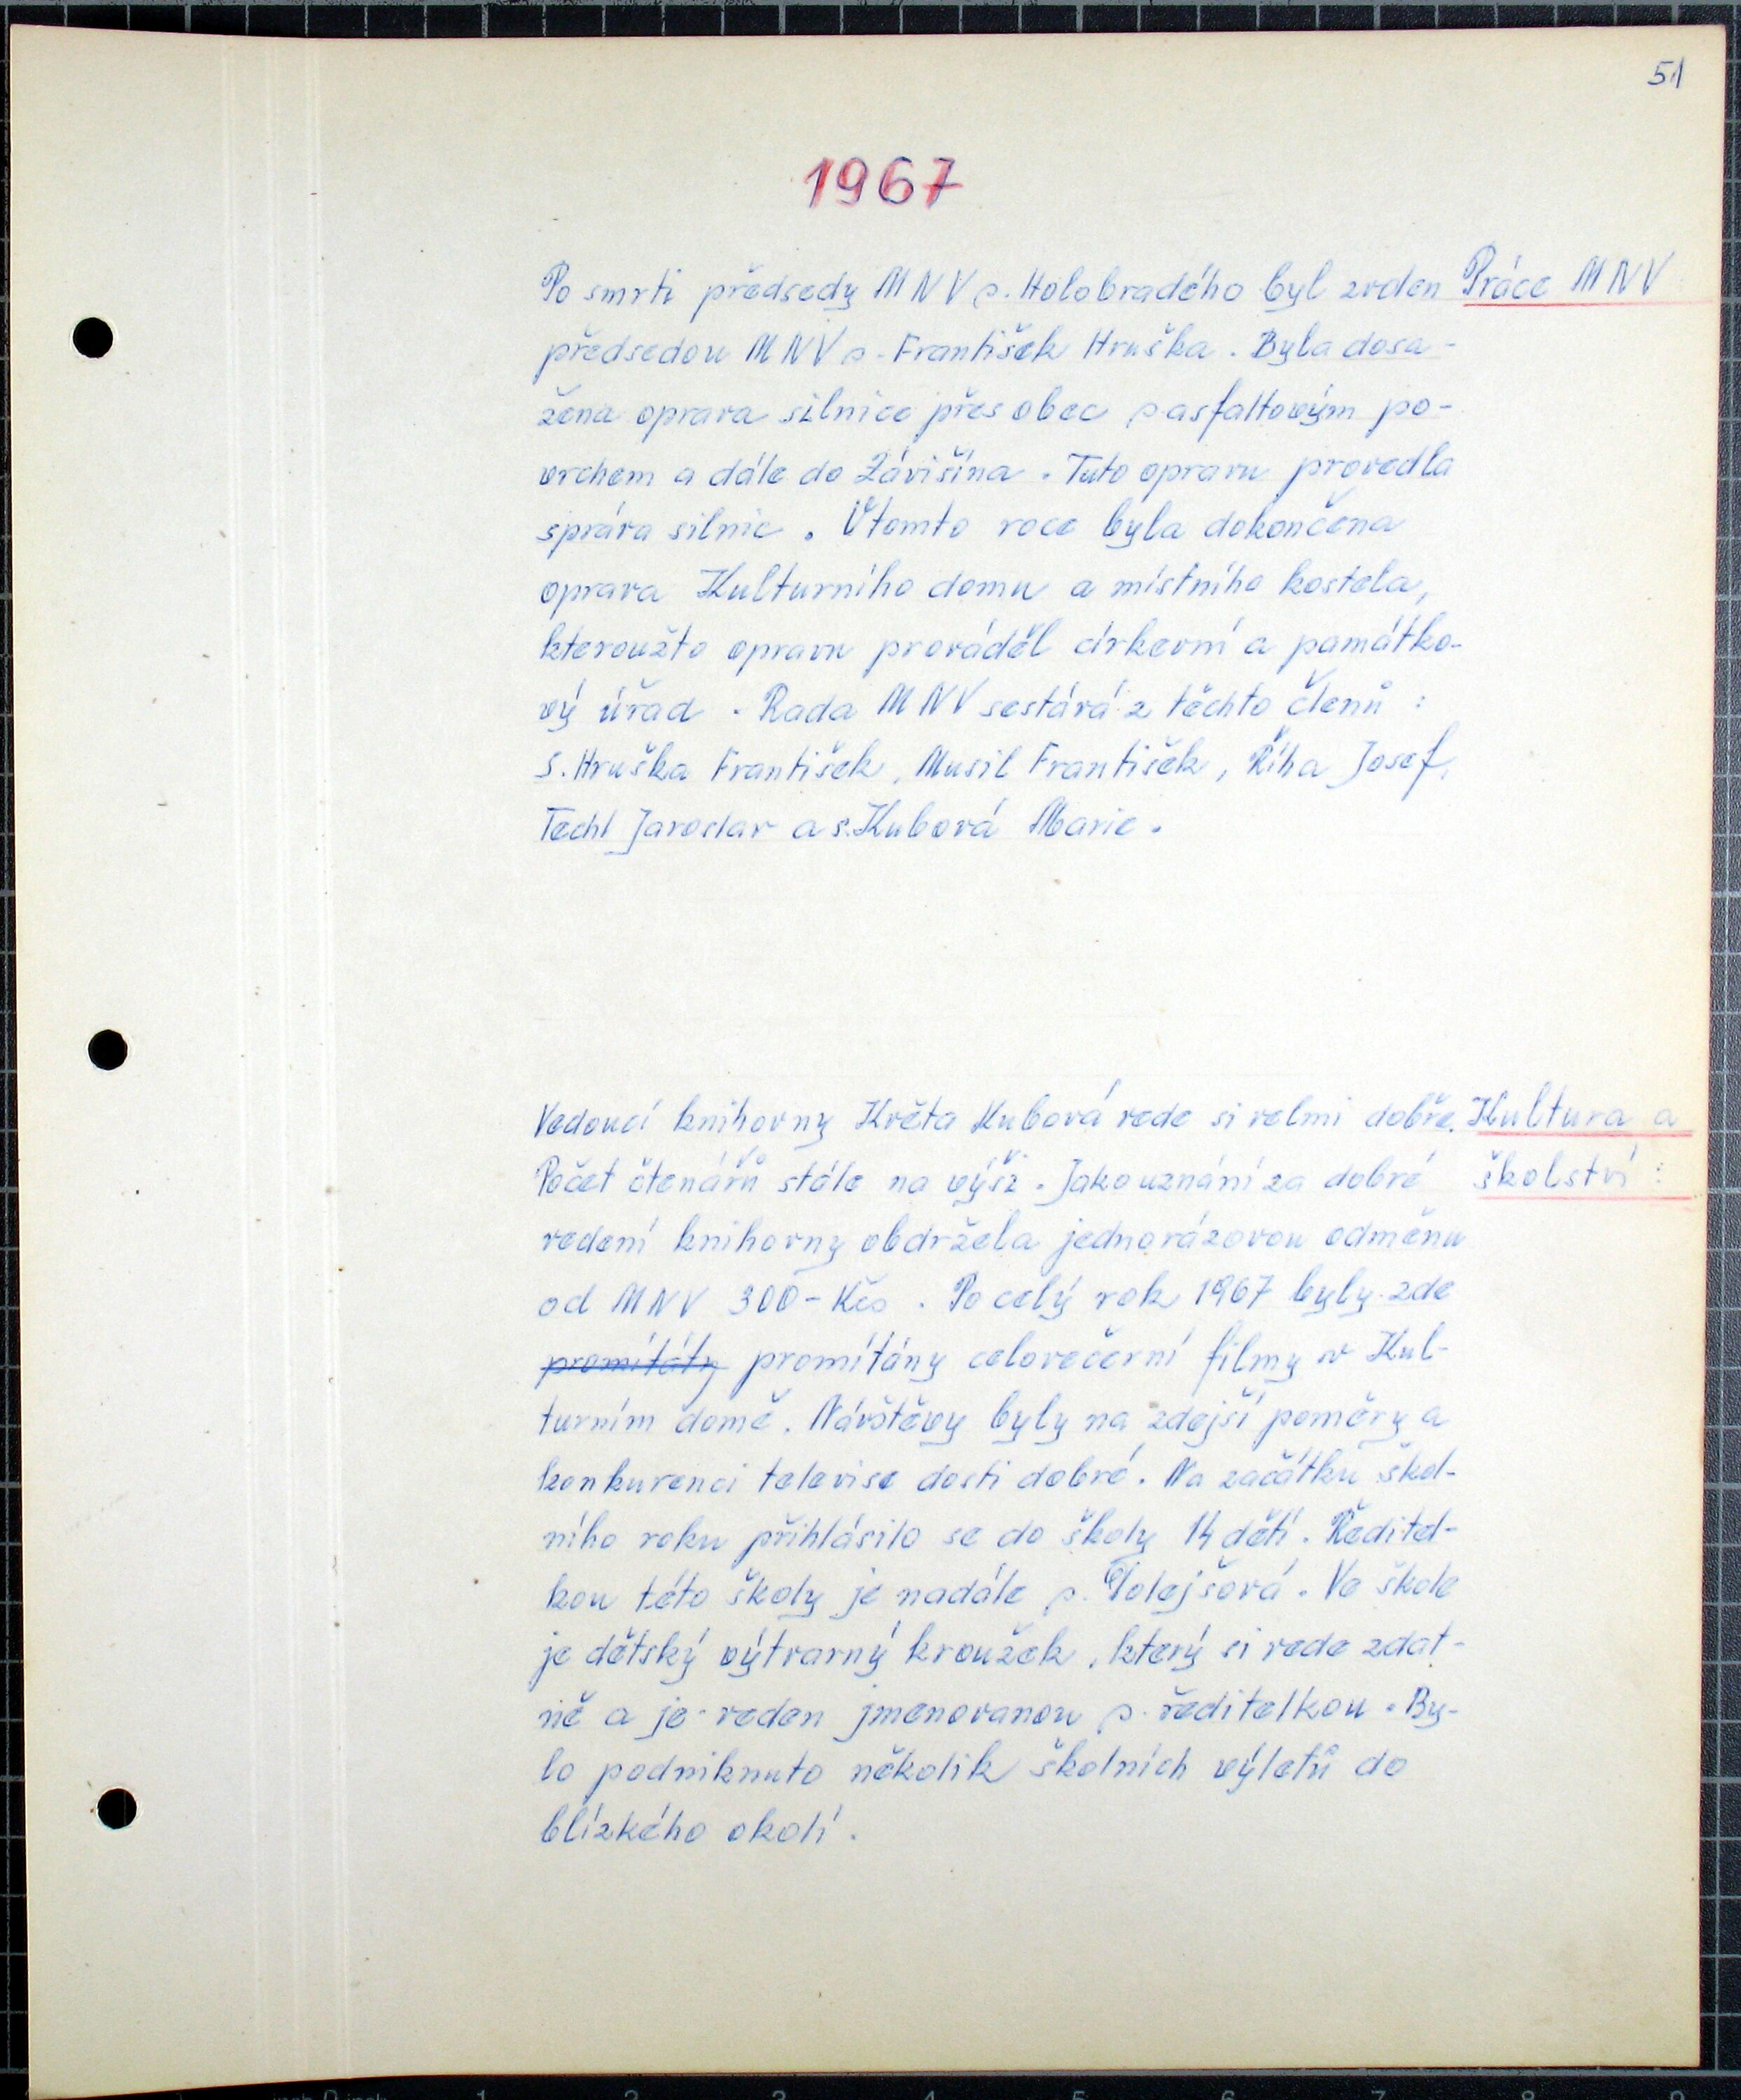 51
1967
Po smrti předsedy MNV s. Holobradého byl zvolen Práce MNV
předsedou MNV s. František Hruška. Byla dosa-
žena oprava silnice přes obec s asfaltovým po-
vrchem a dále do Závišína. Tuto opravu provedla
správa silnic. V tomto roce byla dokončena
oprava Kulturního domu a místního kostela,
kteroužto opravu prováděl církevní a památko-
vý úřad. Rada MNV sestává z těchto členů:
S. Hruška František, Musil František, Říha Josef,
Techl Jaroslav a s. Kubová Marie.
Vedoucí knihovny Květa Kubová vede si velmi dobře. Kultura a
Počet čtenářů stále na výši. Jako uznání za dobré školství:
vedení knihovny obdržela jednorázovou odměnu
od MNV 300- Kčs. Po celý rok 1967 byly zde
promítáty promítány celovečerní filmy v Kul-
turním domě. Návštěvy byly na zdejší poměry a
konkurenci televise dosti dobré. Na začátku škol-
ního roku přihlásilo se do školy 14 dětí. Ředitel-
kou této školy je nadále s. Tolejšová. Ve škole
je dětský výtvarný kroužek, který si vede zdat-
ně a je veden jmenovanou s. ředitelkou. By-
lo podniknuto několik školních výletů do
blízkého okolí.